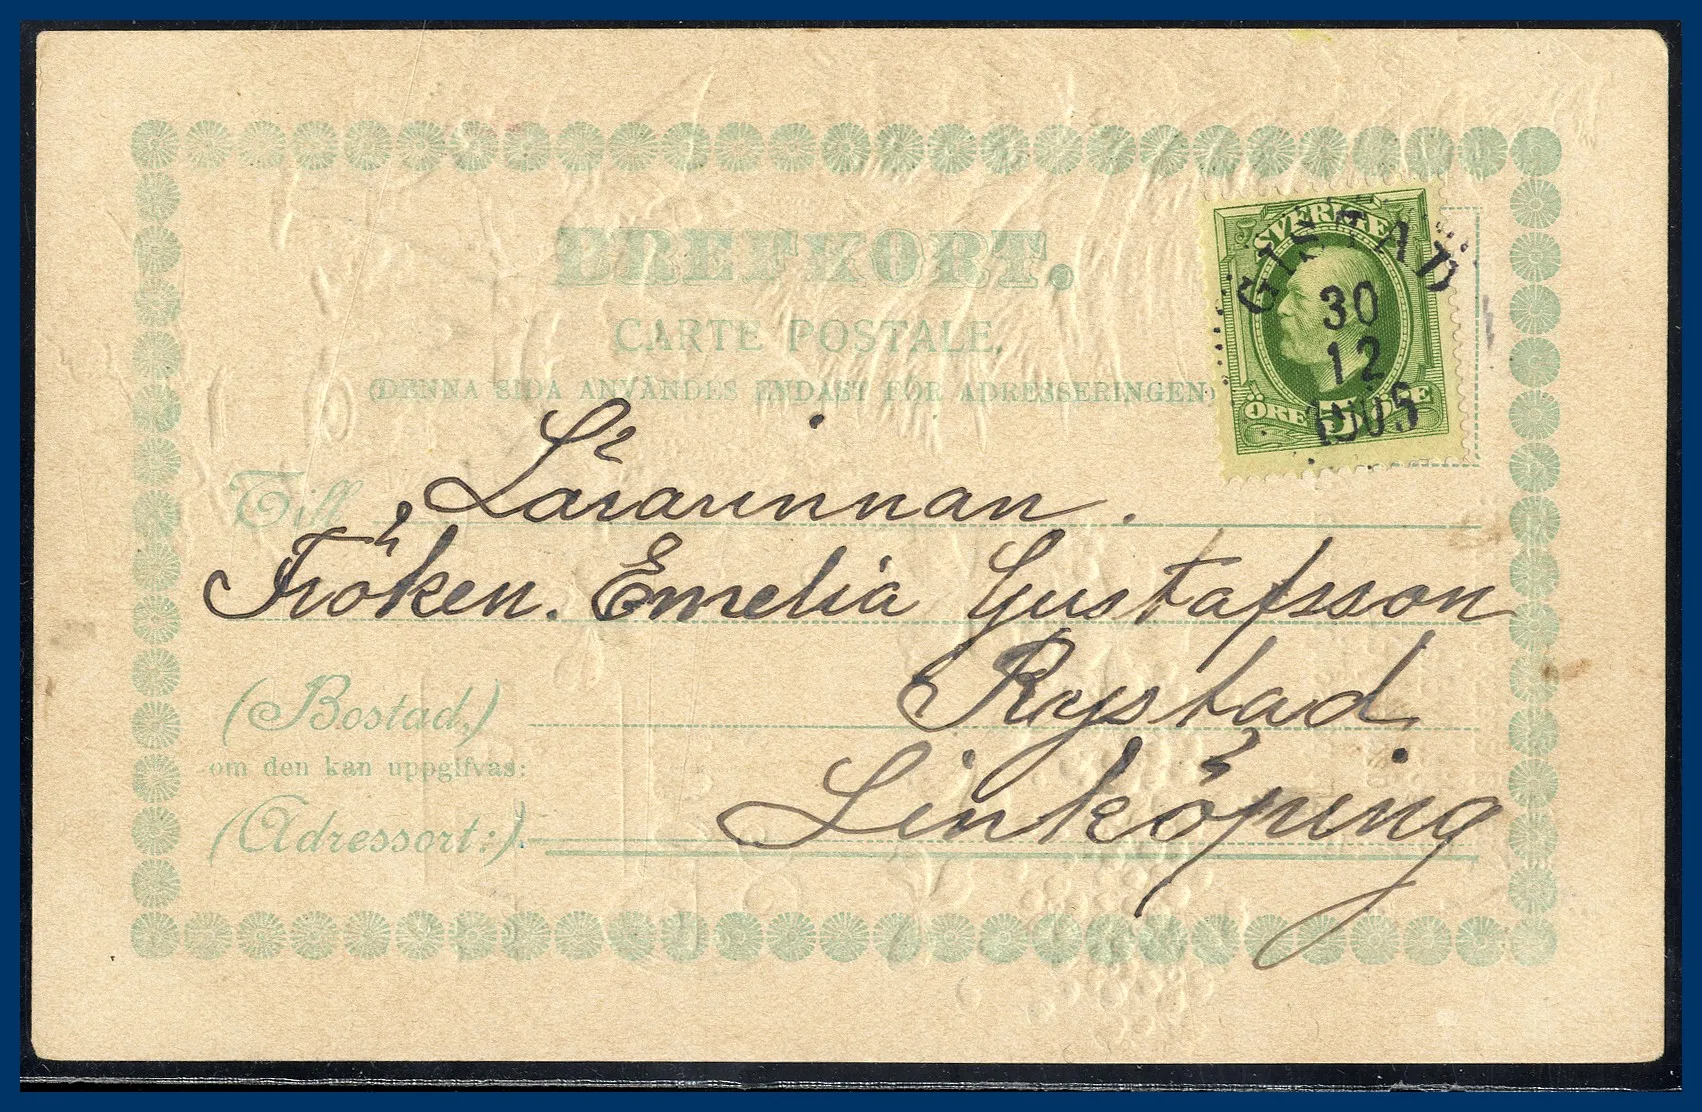 BREFKORT.
CARTE POSTALE.
(DENNA SIDA ANVÄNDES ENDAST FÖR ADRESSERINGEN)
SVERIGE
GISTAD
30
12
1905
ÖRE 5 ÖRE
Till Lärarinnan.
Fröken. Emelia Gustafsson
(Bostad.) Rystad
om den kan uppgifvas:
(Adressort:). Linköping